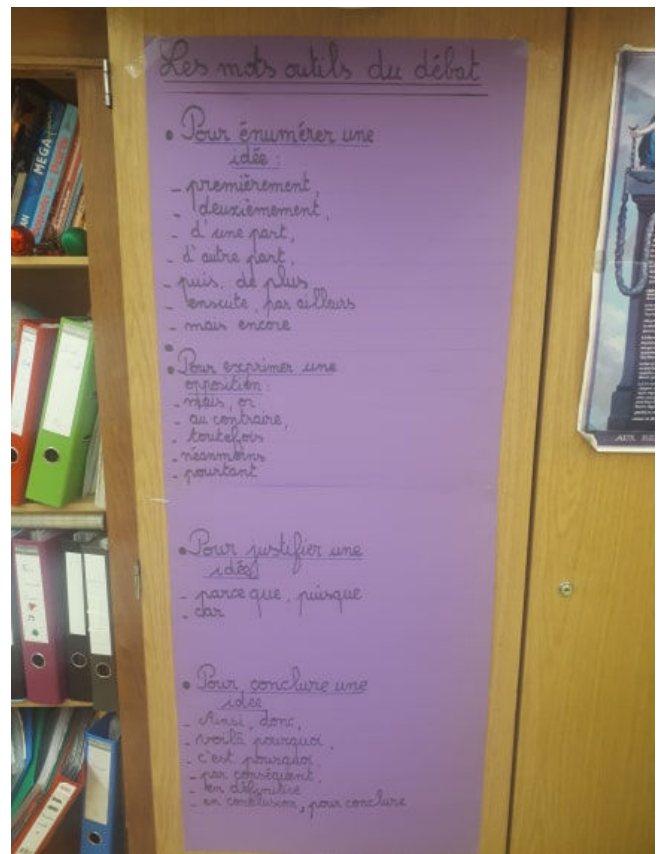 Les mots outils du débat
• Pour énumérer une
idée :
- premièrement,
- deuxièmement,
- d'une part,
- d'autre part,
- puis, de plus
- ensuite, par ailleurs
- mais encore
• Pour exprimer une
opposition :
- mais, or
- au contraire,
- toutefois
- néanmoins
- pourtant
• Pour justifier une
idée
- parce que, puisque
- car
• Pour conclure une
idée
- Ainsi, donc,
- voilà pourquoi,
- c'est pourquoi,
- par conséquent,
- en définitive
- en conclusion, pour conclure
MEGA
AUX